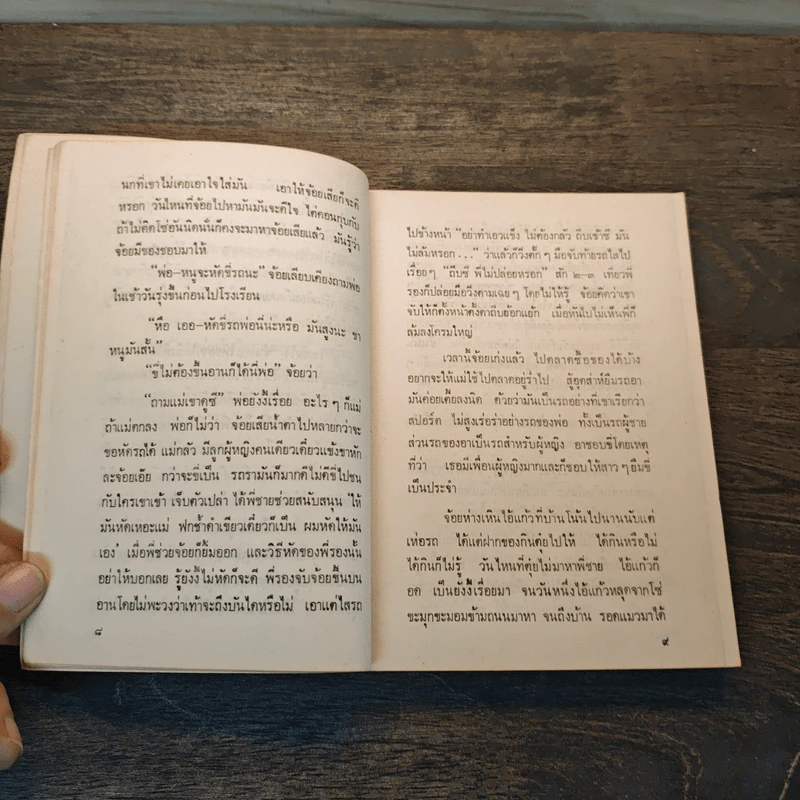 นกที่เขาไม่เคยเอาใจใส่มัน เอาให้จ้อยเสียก็จะดี
หรอก วันไหนที่จ้อยไปหามันมันจะดีใจ ไต่คอนกุบกับ
ถ้าไม่ติดโซ่อันนิดนั้นก็คงจะมาหาจ้อยเสียแล้ว มันรู้ว่า
จ้อยมีของชอบมาให้
“พ่อ–หนูจะหัดขี่รถนะ” จ้อยเลียบเคียงถามพ่อ
ในเช้าวันรุ่งขึ้นก่อนไปโรงเรียน
“หือ เออ–หัดขี่รถพ่อนี่น่ะหรือ มันสูงนะ ขา
หนูมันสั้น”
“ขี่ไม่ต้องขึ้นอานก็ได้นี่พ่อ” จ้อยว่า
“ถามแม่เขาดูซี” พ่อยังงี้เรื่อย อะไร ๆ ก็แม่
ถ้าแม่ตกลง พ่อก็ไม่ว่า จ้อยเสียน้ำตาไปหลายกว่าจะ
ขอหัดรถได้ แม่กลัว มีลูกผู้หญิงคนเดียวเดี๋ยวแข้งขาหัก
ละจ้อยเอ๊ย กว่าจะขี่เป็น รถรามันก็มากดีไม่ดีขี่ไปชน
กับใครเขาเข้า เจ็บตัวเปล่า ได้พี่ชายช่วยสนับสนุน ‘ให้
มันหัดเหอะแม่ ฟกช้ำดำเขียวเดี๋ยวก็เป็น ผมหัดให้มัน
เอง’ เมื่อพี่ช่วยจ้อยก็ยิ้มออก และวิธีหัดของพี่รองนั้น
อย่าให้บอกเลย รู้ยังงี้ไม่หัดก็จะดี พี่รองจับจ้อยขึ้นบน
อานโดยไม่พะวงว่าเท้าจะถึงบันไดหรือไม่ เอาแต่ไสรถ
๘
ไปข้างหน้า “อย่าทำเอวแข็ง ไม่ต้องกลัว ถีบเข้าซี มัน
ไม่ล้มหรอก...” ว่าแล้วก็วิ่งตั้ก ๆ มือจับท้ายรถไสไป
เรื่อย ๆ “ถีบซี พี่ไม่ปล่อยหรอก” สัก ๒–๓ เที่ยวพี่
รองก็ปล่อยมือวิ่งตามเฉย ๆ โดยไม่ให้รู้ จ้อยคิดว่าเขา
จับให้ก็ตั้งหน้าตั้งตาถีบยอกแยก เมื่อหันไปไม่เห็นพี่ก็
ล้มลงโครมใหญ่
เวลานี้จ้อยเก่งแล้ว ไปตลาดซื้อของได้บ้าง
อยากจะให้แม่ใช้ไปตลาดอยู่ร่ำไป สู้อุตส่าห์ยืมรถอา
มันค่อยเตี้ยลงนิด ด้วยว่ามันเป็นรถอย่างที่เขาเรียกว่า
สปอร์ต ไม่สูงเร่อร่าอย่างรถของพ่อ ทั้งเป็นรถผู้ชาย
ส่วนรถของอาเป็นรถสำหรับผู้หญิง อาชอบขี่โดยเหตุ
ที่ว่า เธอมีเพื่อนผู้หญิงมากและก็ชอบให้สาว ๆ ยืมขี่
เป็นประจำ
จ้อยห่างเหินไอ้แก้วที่บ้านโน้นไปนานนับแต่
เห่อรถ ได้แต่ฝากของกินตุ๋ยไปให้ ได้กินหรือไม่
ได้กินก็ไม่รู้ วันไหนที่ตุ๋ยไม่มาหาพี่ชาย ไอ้แก้วก็
อด เป็นยังงี้เรื่อยมา จนวันหนึ่งไอ้แก้วหลุดจากโซ่
ขะมุกขะมอมข้ามถนนมาหา จนถึงบ้าน รอดแมวมาได้
๙